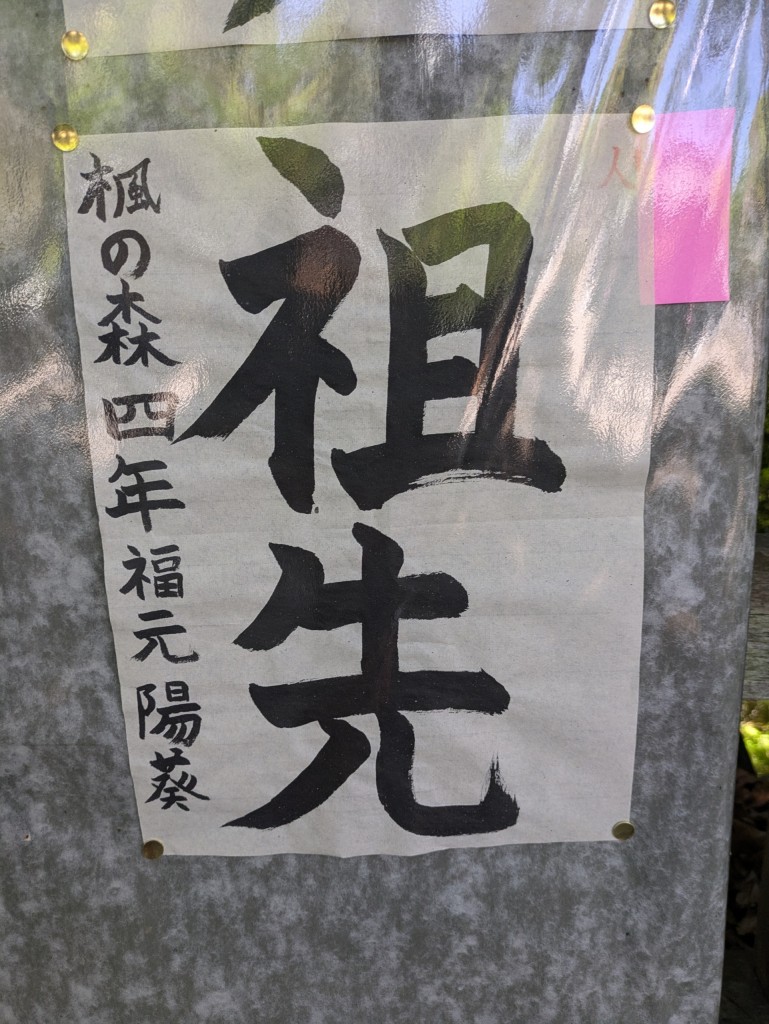 祖先
楓の森四年福元陽葵